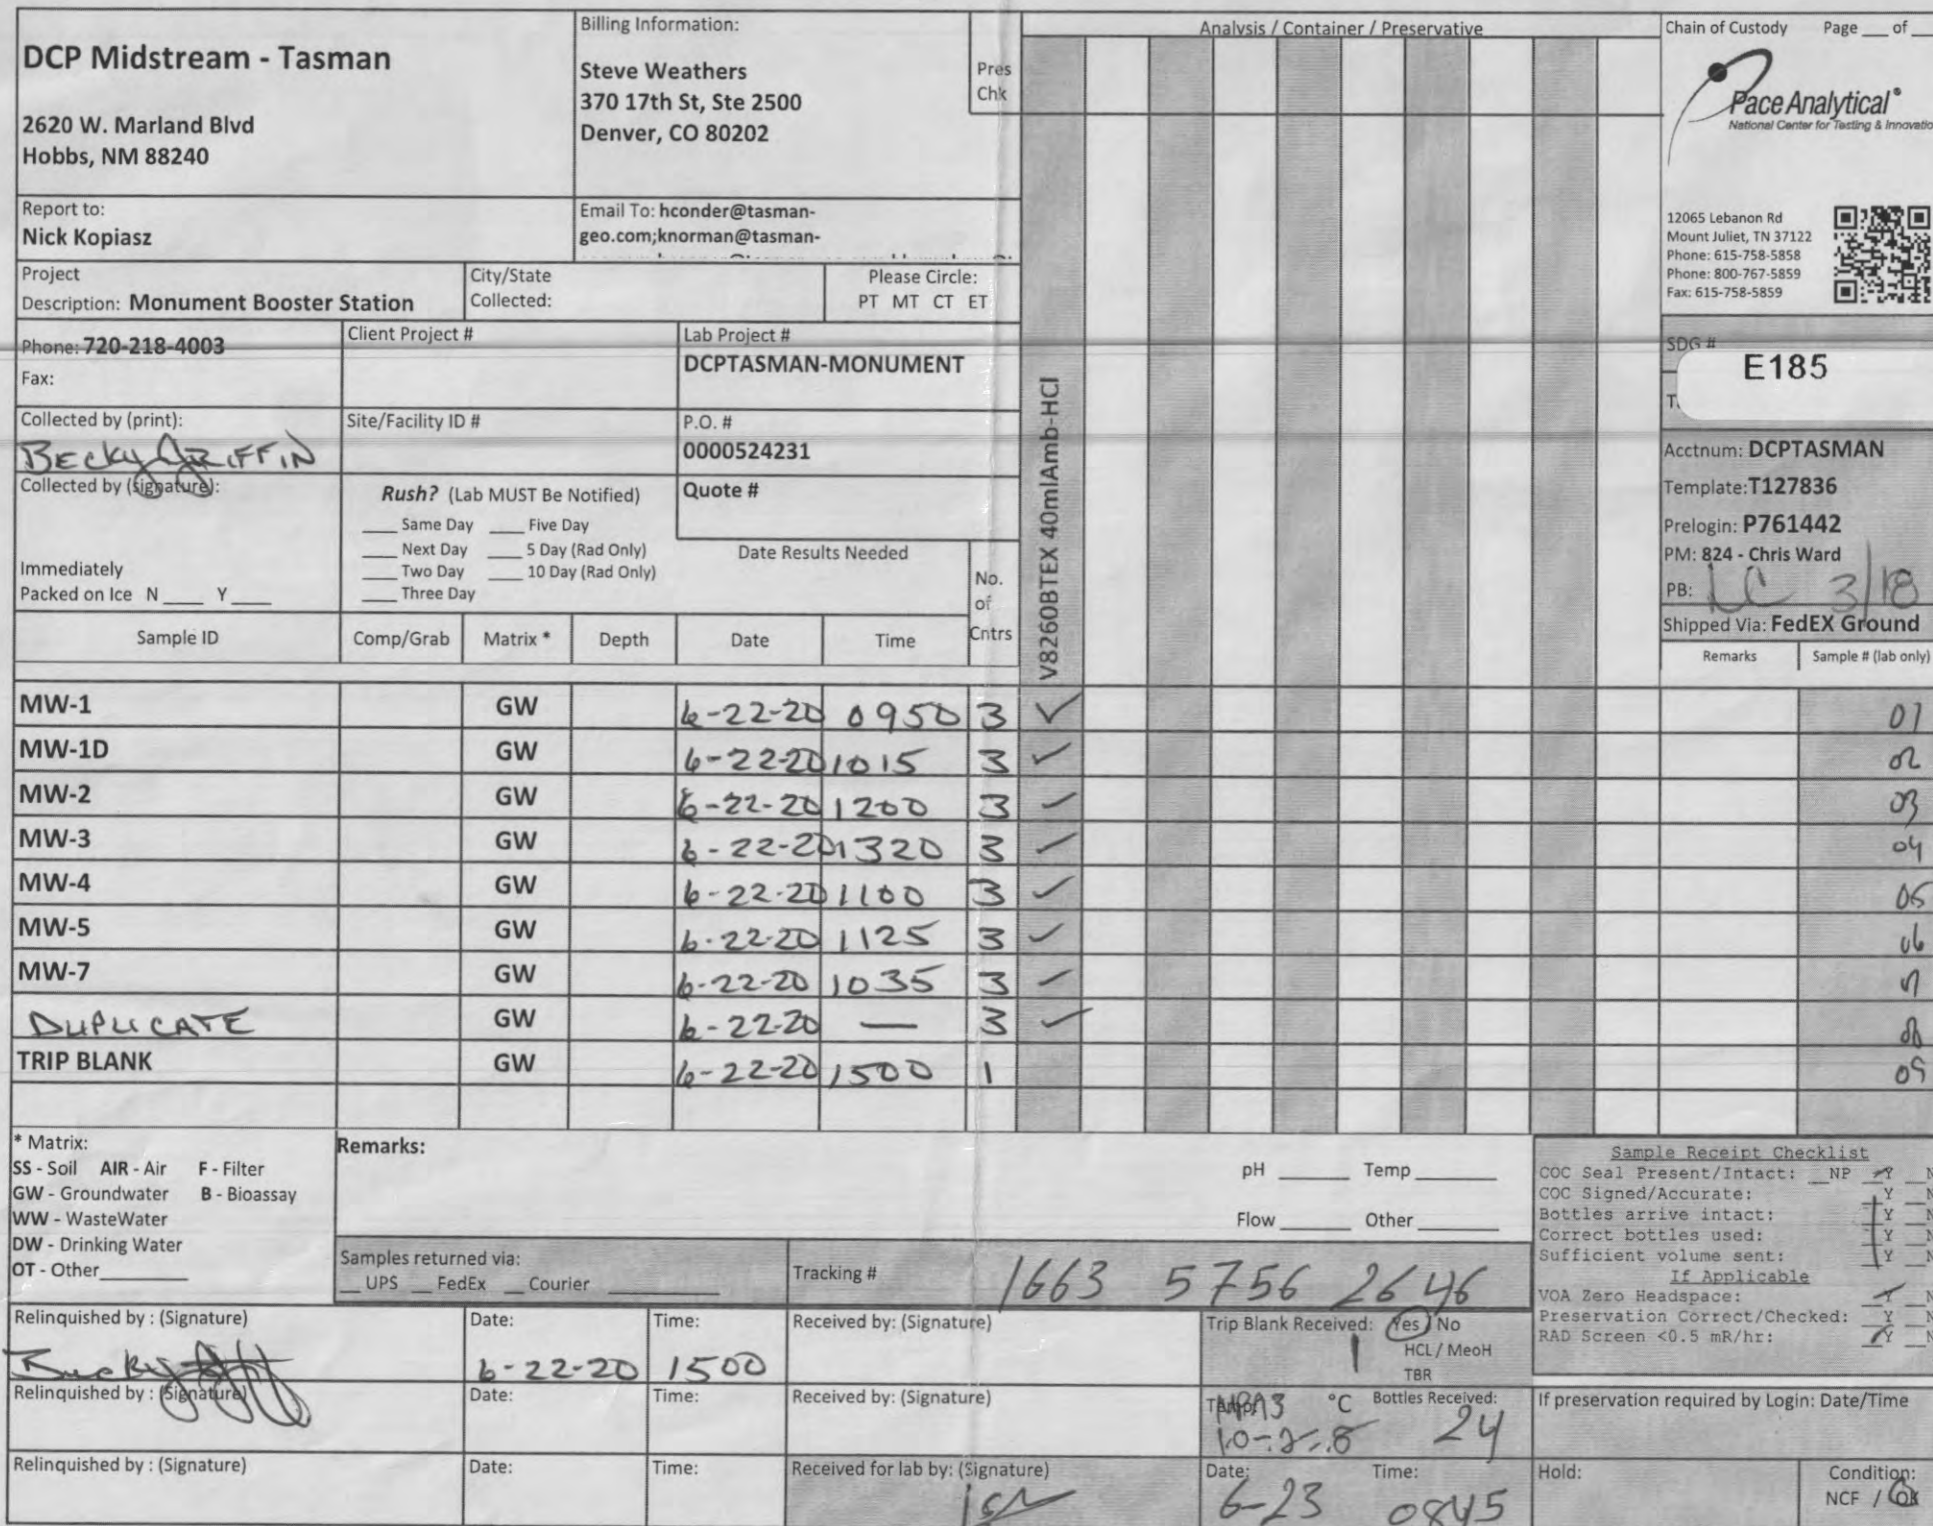 DCP Midstream - Tasman
2620 W. Marland Blvd
Hobbs, NM 88240
Billing Information:
Steve Weathers
370 17th St, Ste 2500
Denver, CO 80202
Pres
Chk
Analysis / Container / Preservative
Chain of Custody Page ___ of
Pace Analytical®
National Center for Testing & Innovatio
12065 Lebanon Rd
Mount Juliet, TN 37122
Phone: 615-758-5858
Phone: 800-767-5859
Fax: 615-758-5859
Report to:
Nick Kopiasz
Email To: hconder@tasman-
geo.com;knorman@tasman-
Project
Description: Monument Booster Station
City/State
Collected:
Please Circle:
PT MT CT ET
Phone: 720-218-4003
Fax:
Client Project #
Lab Project #
DCPTASMAN-MONUMENT
SDG #
E185
Collected by (print):
BECKY GRIFFIN
Site/Facility ID #
P.O. #
0000524231
Collected by (signature):
Rush? (Lab MUST Be Notified)
___ Same Day ___ Five Day
___ Next Day ___ 5 Day (Rad Only)
___ Two Day ___ 10 Day (Rad Only)
___ Three Day
Quote #
Date Results Needed
Immediately
Packed on Ice N ___ Y ___
No.
of
Cntrs
V8260BTEX 40mlAmb-HCl
Acctnum: DCPTASMAN
Template: T127836
Prelogin: P761442
PM: 824 - Chris Ward
PB: LC 3/18
Shipped Via: FedEX Ground
Sample ID Comp/Grab Matrix * Depth Date Time Remarks Sample # (lab only)
MW-1 GW 6-22-20 0950 3 ✓ 01
MW-1D GW 6-22-20 1015 3 ✓ 02
MW-2 GW 6-22-20 1200 3 ✓ 03
MW-3 GW 6-22-20 1320 3 ✓ 04
MW-4 GW 6-22-20 1100 3 ✓ 05
MW-5 GW 6-22-20 1125 3 ✓ 06
MW-7 GW 6-22-20 1035 3 ✓ 07
DUPLICATE GW 6-22-20 — 3 ✓ 08
TRIP BLANK GW 6-22-20 1500 1 09
* Matrix:
SS - Soil AIR - Air F - Filter
GW - Groundwater B - Bioassay
WW - WasteWater
DW - Drinking Water
OT - Other________
Remarks:
pH ______ Temp ______
Flow ______ Other ______
Samples returned via:
__ UPS __ FedEx __ Courier ________
Tracking # 1663 5756 2646
Sample Receipt Checklist
COC Seal Present/Intact: __NP __Y __N
COC Signed/Accurate: __Y __N
Bottles arrive intact: __Y __N
Correct bottles used: __Y __N
Sufficient volume sent: __Y __N
If Applicable
VOA Zero Headspace: __Y __N
Preservation Correct/Checked: __Y __N
RAD Screen <0.5 mR/hr: __Y __N
Relinquished by : (Signature)
Date:
6-22-20
Time:
1500
Received by: (Signature)
Trip Blank Received: Yes / No
1
HCL / MeoH
TBR
Relinquished by : (Signature)
Date:
Time:
Received by: (Signature)
°C
Bottles Received:
24
If preservation required by Login: Date/Time
Relinquished by : (Signature)
Date:
Time:
Received for lab by: (Signature)
Date:
6-23
Time:
0845
Hold:
Condition:
NCF / OK